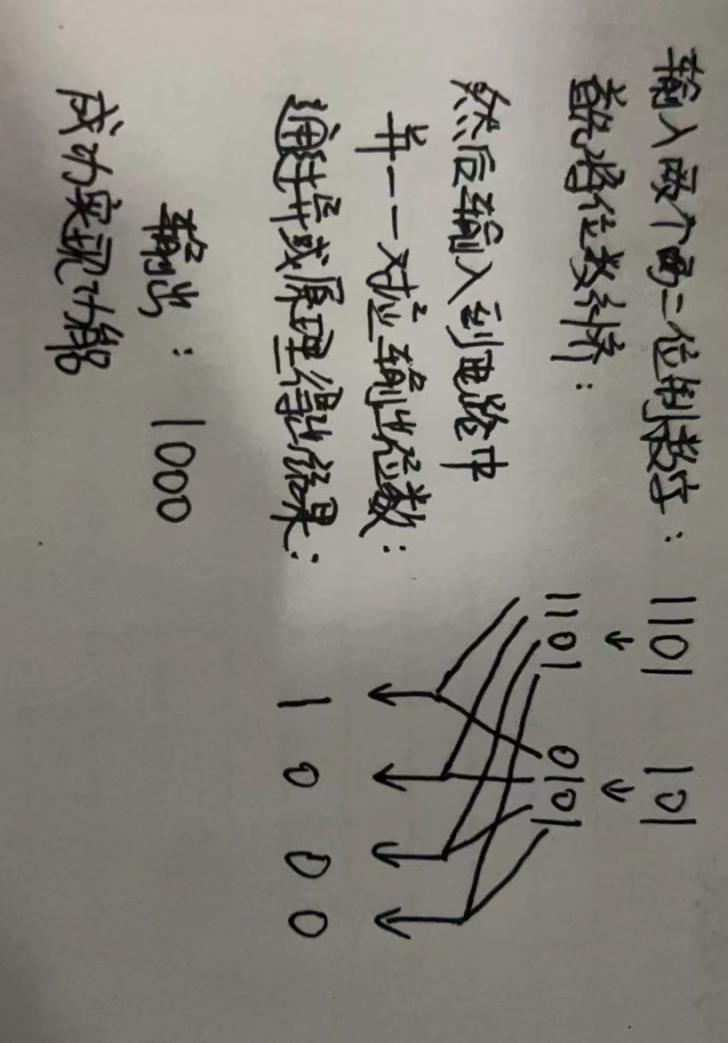 输入两个两二位制数字： 1101 101
首先将位数纠齐： 1101 0101
然后输入到电路中
并一一对应输出位数：
通过异或原理得出结果： 1 0 0 0
输出： 1000
成功实现功能